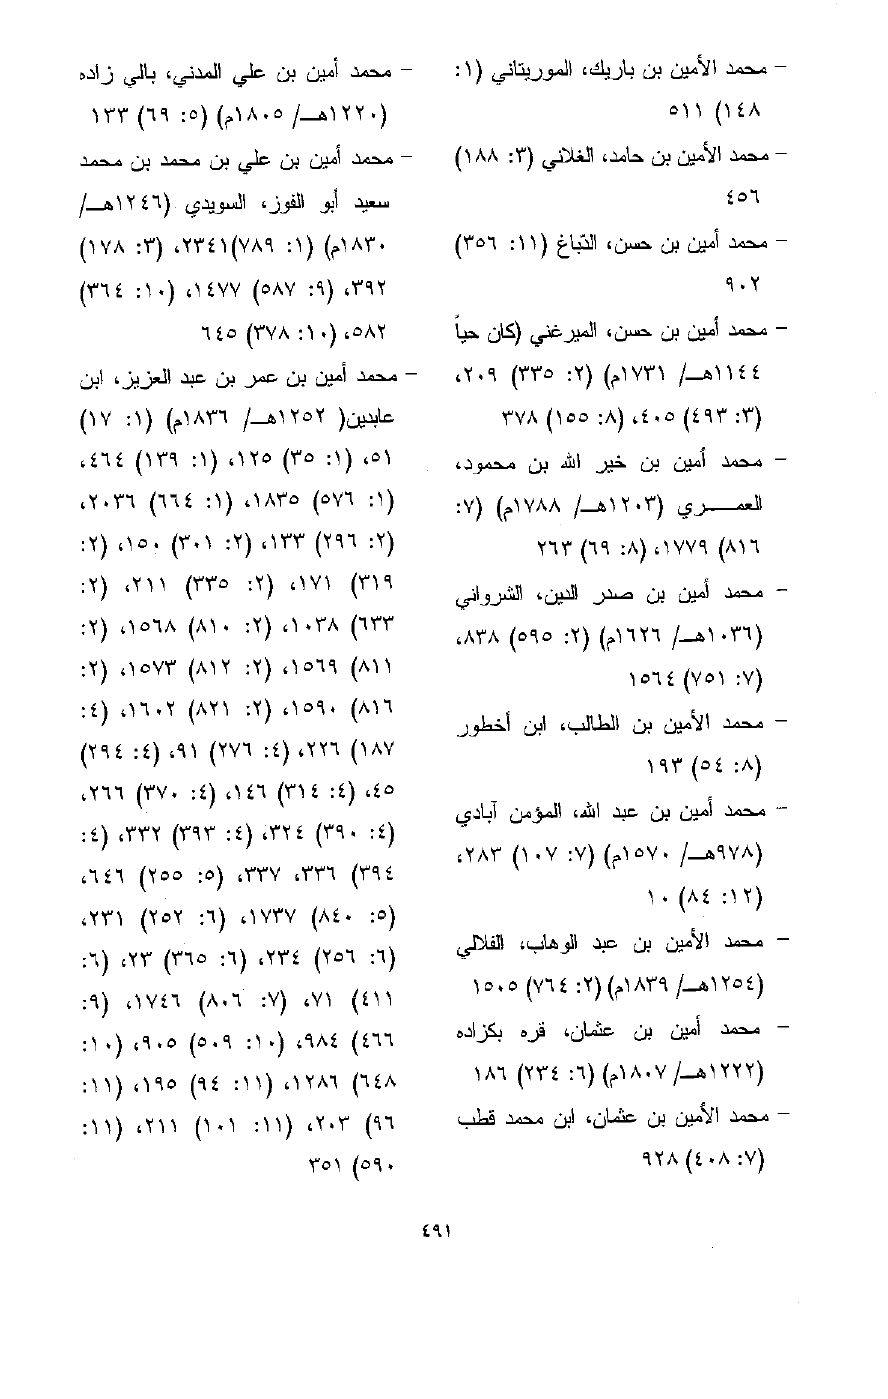 – محمد الأمين بن باريك، الموريتاني (١:
١٤٨) ٥١١
– محمد الأمين بن حامد، الغلاني (٣: ١٨٨)
٤٥٦
– محمد أمين بن حسن، الدّباغ (١١: ٣٥٦)
٩٠٢
– محمد أمين بن حسن، الميرغني (كان حياً
١١٤٤هـ/ ١٧٣١م) (٢: ٣٣٥) ٢٠٩،
(٣: ٤٩٣) ٤٠٥، (٨: ١٥٥) ٣٧٨
– محمد أمين بن خير الله بن محمود،
العمــري (١٢٠٣هـ/ ١٧٨٨م) (٧:
٨١٦) ١٧٧٩، (٨: ٦٩) ٢٦٣
– محمد أمين بن صدر الدين، الشرواني
(١٠٣٦هـ/ ١٦٢٦م) (٢: ٥٩٥) ٨٣٨،
(٧: ٧٥١) ١٥٦٤
– محمد الأمين بن الطالب، ابن أخطور
(٨: ٥٤) ١٩٣
– محمد أمين بن عبد الله، المؤمن آبادي
(٩٧٨هـ/ ١٥٧٠م) (٧: ١٠٧) ٢٨٣،
(١٢: ٨٤) ١٠
– محمد الأمين بن عبد الوهاب، الفلالي
(١٢٥٤هـ/ ١٨٣٩م) (٢: ٧٦٤) ١٥٠٥
– محمد أمين بن عثمان، قره بكزاده
(١٢٢٢هـ/ ١٨٠٧م) (٦: ٢٣٤) ١٨٦
– محمد الأمين بن عثمان، ابن محمد قطب
(٧: ٤٠٨) ٩٢٨
– محمد أمين بن علي المدني، بالي زاده
(١٢٢٠هـ/ ١٨٠٥م) (٥: ٦٩) ١٣٣
– محمد أمين بن علي بن محمد بن محمد
سعيد أبو الفوز، السويدي (١٢٤٦هـ/
١٨٣٠م) (١: ٧٨٩)٢٣٤١، (٣: ١٧٨)
٣٩٢، (٩: ٥٨٧) ١٤٧٧، (١٠: ٣٦٤)
٥٨٢، (١٠: ٣٧٨) ٦٤٥
– محمد أمين بن عمر بن عبد العزيز، ابن
عابدين( ١٢٥٢هـ/ ١٨٣٦م) (١: ١٧)
٥١، (١: ٣٥) ١٢٥، (١: ١٣٩) ٤٦٤،
(١: ٥٧٦) ١٨٣٥، (١: ٦٦٤) ٢٠٣٦،
(٢: ٢٩٦) ١٣٣، (٢: ٣٠١) ١٥٠، (٢:
٣١٩) ١٧١، (٢: ٣٣٥) ٢١١، (٢:
٦٣٣) ١٠٣٨، (٢: ٨١٠) ١٥٦٨، (٢:
٨١١) ١٥٦٩، (٢: ٨١٢) ١٥٧٣، (٢:
٨١٦) ١٥٩٠، (٢: ٨٢١) ١٦٠٢، (٤:
١٨٧) ٢٢٦، (٤: ٢٧٦) ٩١، (٤: ٢٩٤)
٤٥، (٤: ٣١٤) ١٤٦، (٤: ٣٧٠) ٢٦٦،
(٤: ٣٩٠) ٣٢٤، (٤: ٣٩٣) ٣٣٢، (٤:
٣٩٤) ٣٣٦، ٣٣٧، (٥: ٢٥٥) ٦٤٦،
(٥: ٨٤٠) ١٧٣٧، (٦: ٢٥٢) ٢٣١،
(٦: ٢٥٦) ٢٣٤، (٦: ٣٦٥) ٢٣، (٦:
٤١١) ٧١، (٧: ٨٠٦) ١٧٤٦، (٩:
٤٦٦) ٩٨٤، (١٠: ٥٠٩) ٩٠٥، (١٠:
٦٤٨) ١٢٨٦، (١١: ٩٤) ١٩٥، (١١:
٩٦) ٢٠٣، (١١: ١٠١) ٢١١، (١١:
٥٩٠) ٣٥١
٤٩١